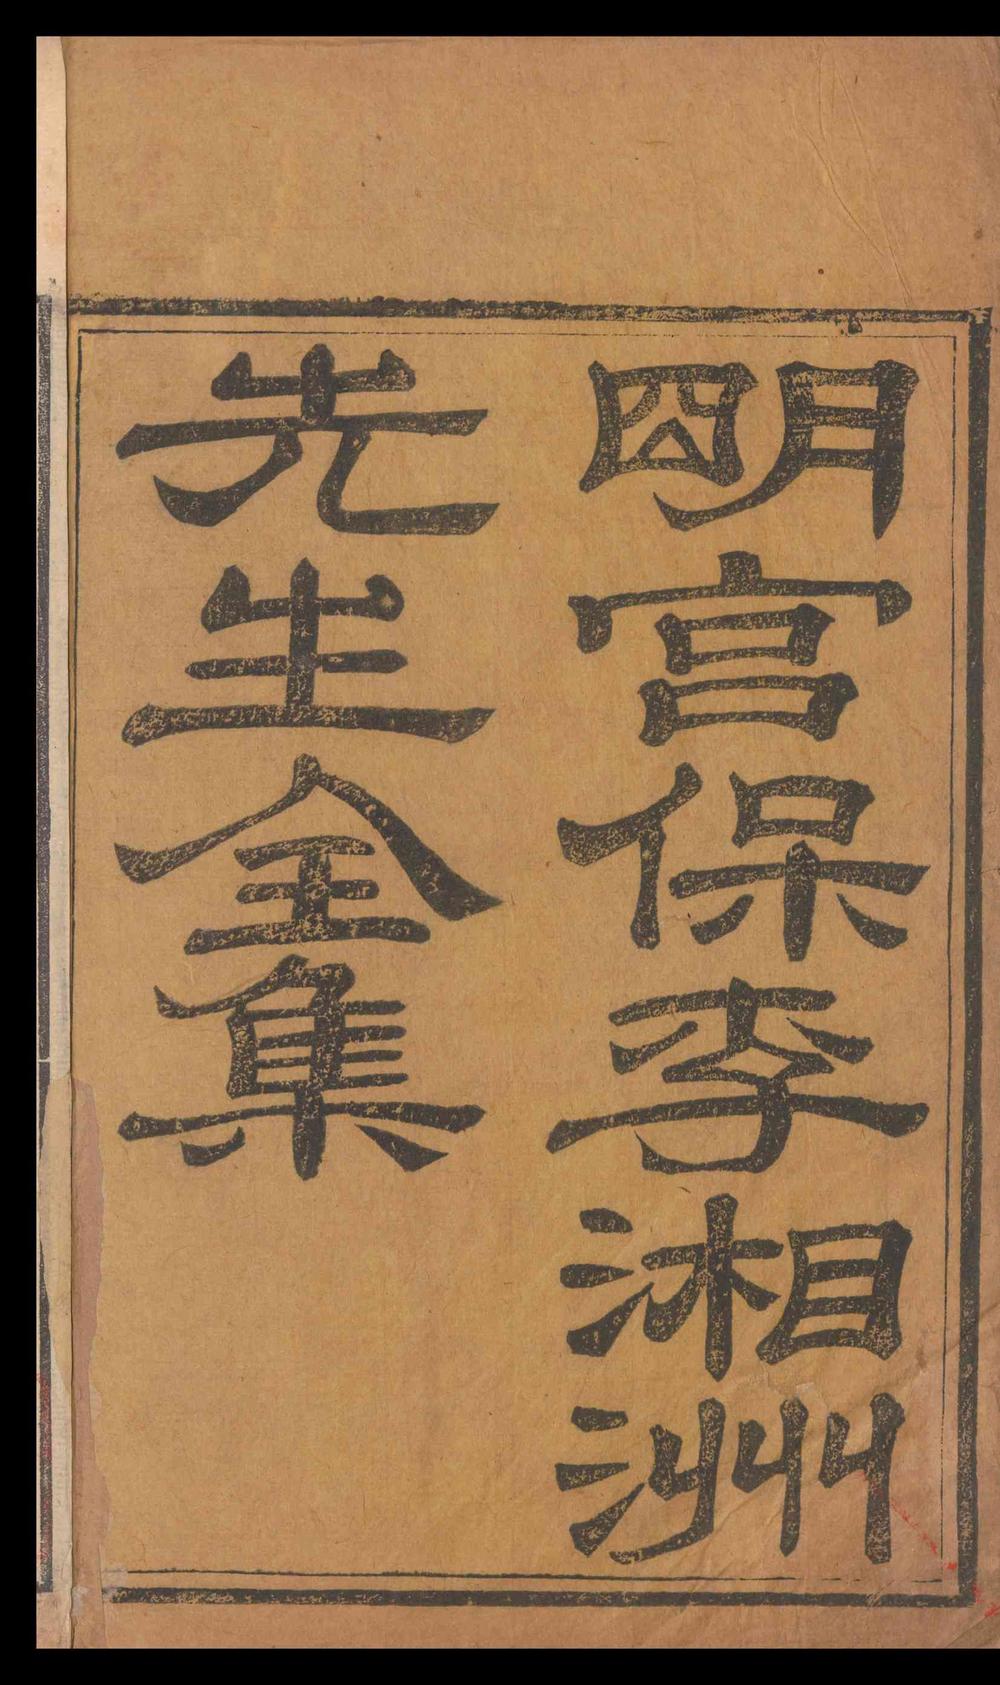 明宮保李湘洲
先生全集